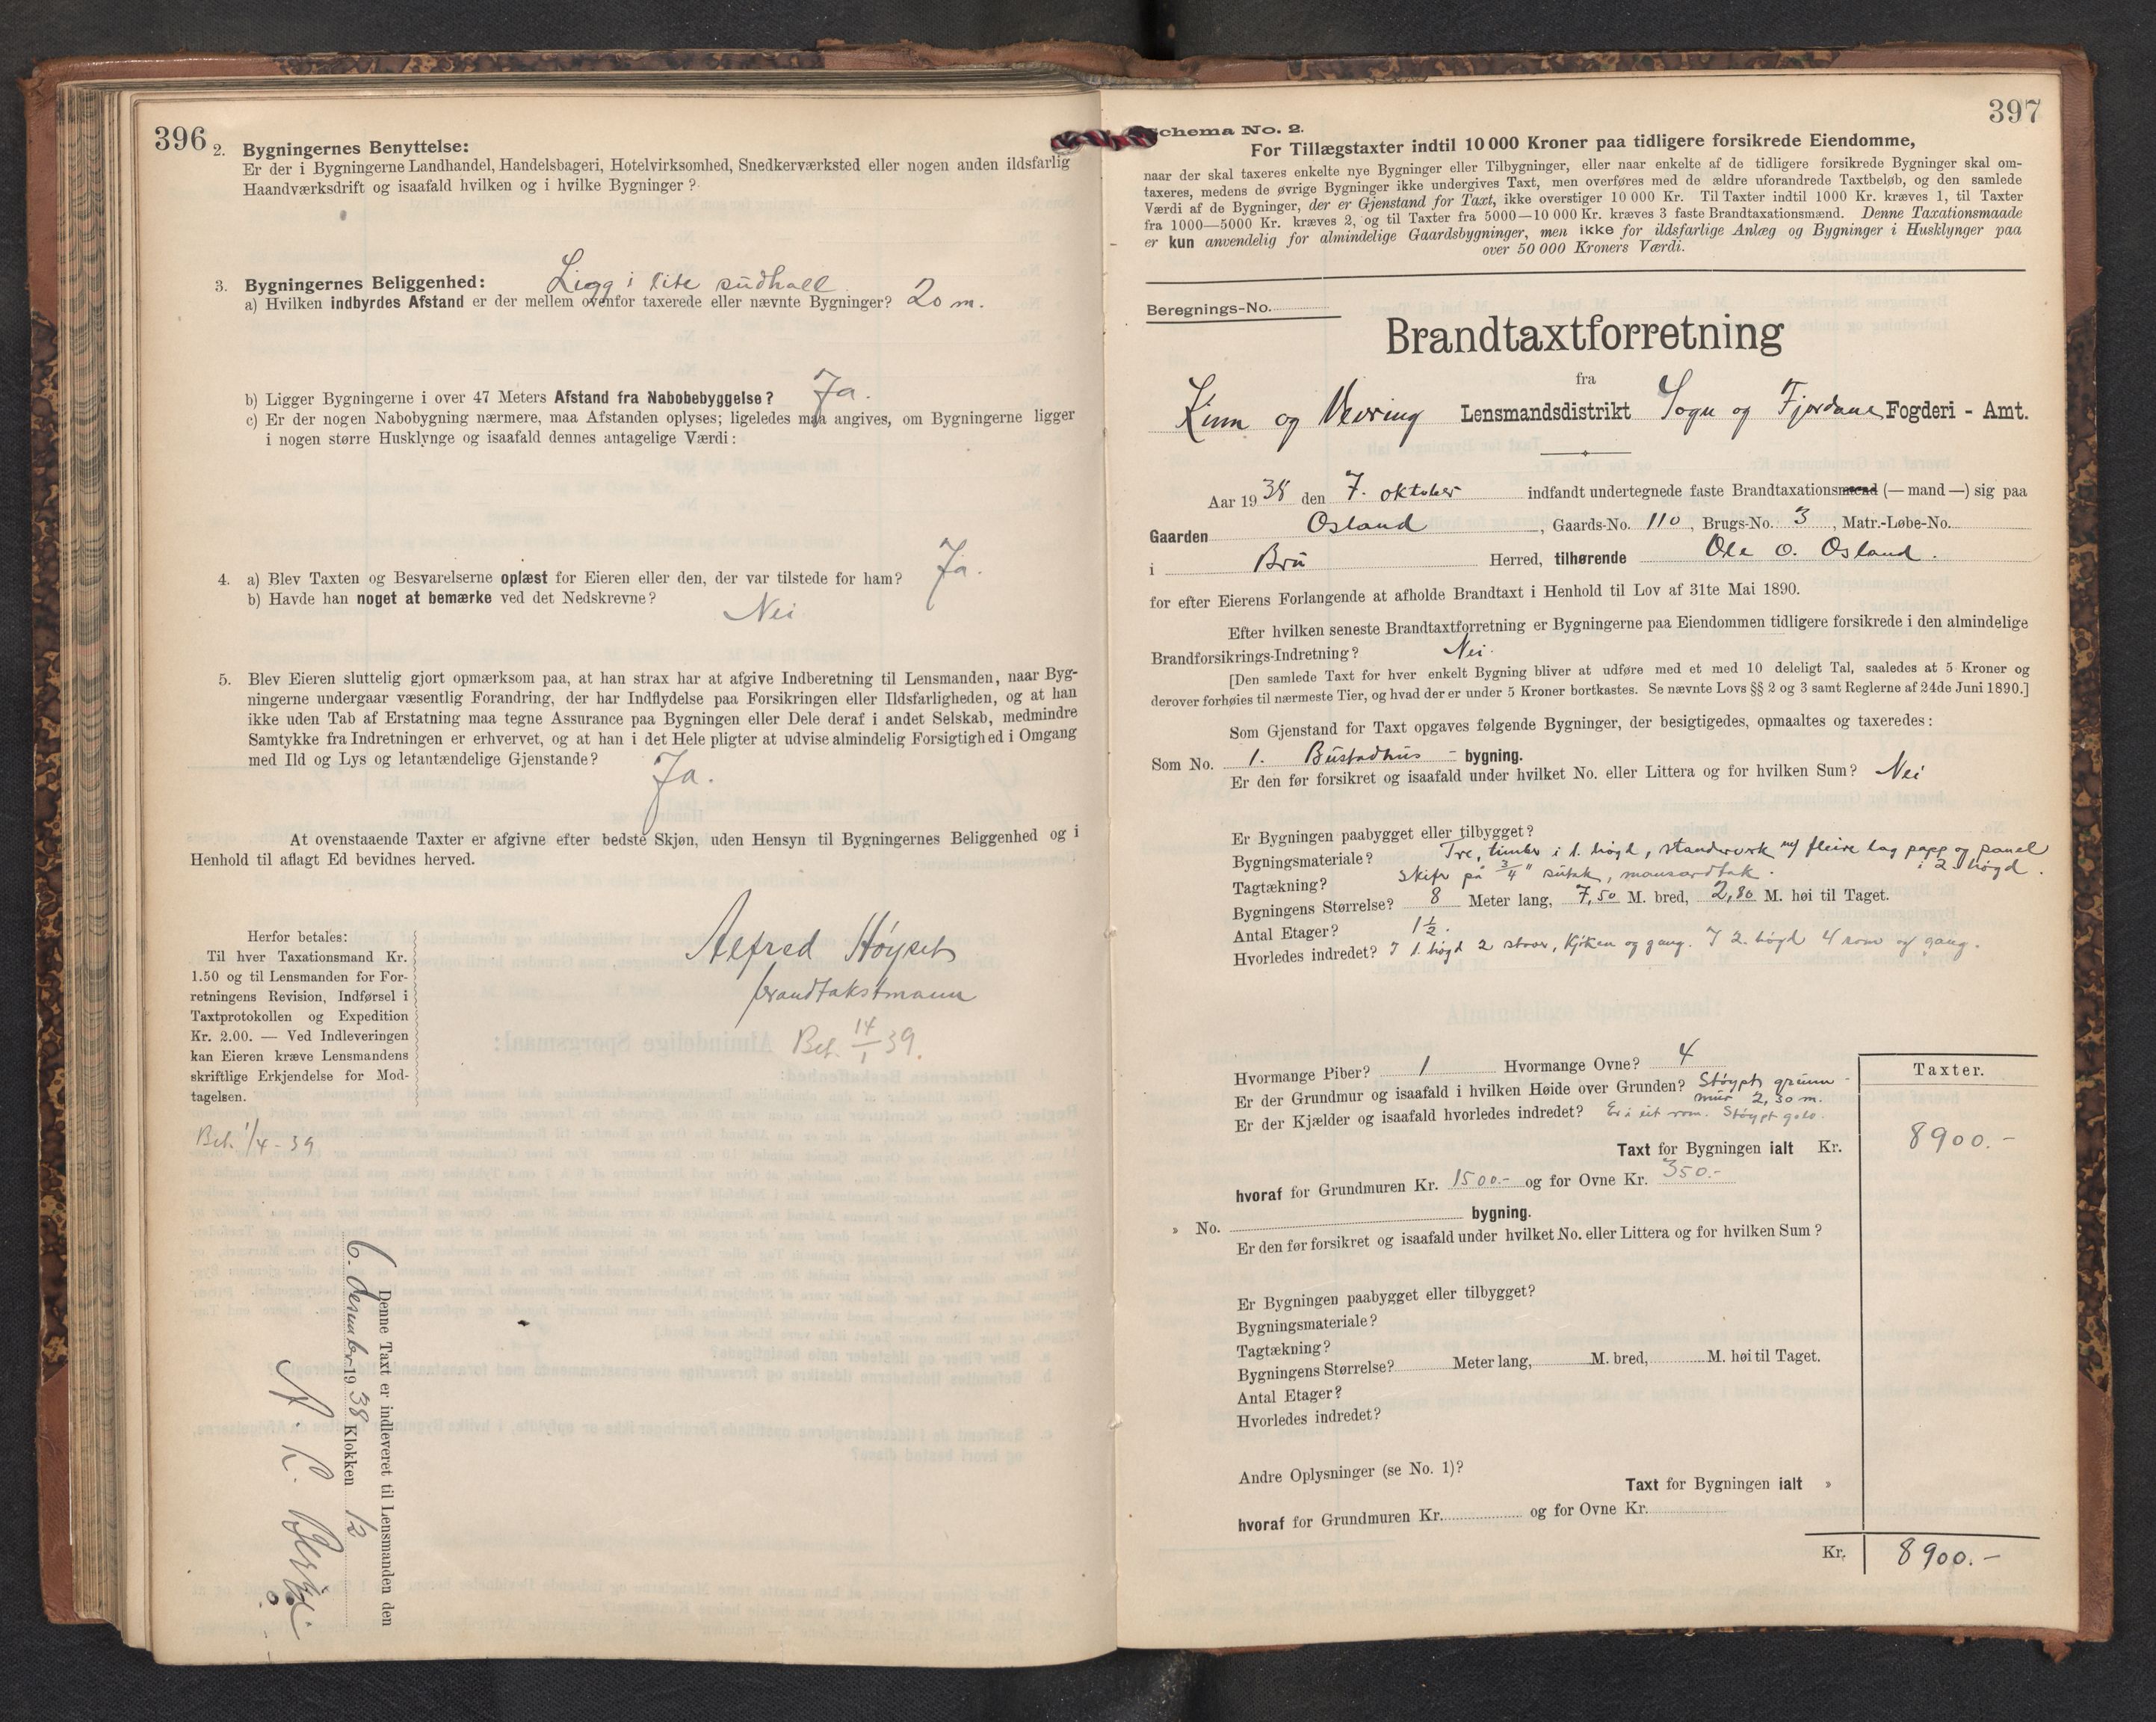 396
2. Bygningernes Benyttelse:
Er der i Bygningerne Landhandel, Handelsbageri, Hotelvirksomhed, Snedkerværksted eller nogen anden ildsfarlig
Haandværksdrift og isaafald hvilken og i hvilke Bygninger?
3. Bygningernes Beliggenhed: Ligg i lite sudhall
a) Hvilken indbyrdes Afstand er der mellem ovenfor taxerede eller nævnte Bygninger? 20 m.
b) Ligger Bygningerne i over 47 Meters Afstand fra Nabobebyggelse? Ja.
c) Er der nogen Nabobygning nærmere, maa Afstanden oplyses; ligeledes maa angives, om Bygningerne ligger
i nogen større Husklynge og isaafald dennes antagelige Værdi:
4. a) Blev Taxten og Besvarelserne oplæst for Eieren eller den, der var tilstede for ham? Ja.
b) Havde han noget at bemærke ved det Nedskrevne? Nei
5. Blev Eieren sluttelig gjort opmærksom paa, at han strax har at afgive Indberetning til Lensmanden, naar Byg-
ningerne undergaar væsentlig Forandring, der har Indflydelse paa Forsikringen eller Ildsfarligheden, og at han
ikke uden Tab af Erstatning maa tegne Assurance paa Bygningen eller Dele deraf i andet Selskab, medmindre
Samtykke fra Indretningen er erhvervet, og at han i det Hele pligter at udvise almindelig Forsigtighed i Omgang
med Ild og Lys og letantændelige Gjenstande? Ja.
At ovenstaaende Taxter er afgivne efter bedste Skjøn, uden Hensyn til Bygningernes Beliggenhed og i
Henhold til aflagt Ed bevidnes herved.
Alfred Høyset
brandtakstmann
Bet. 14/1 39.
Herfor betales:
Til hver Taxationsmand Kr.
1.50 og til Lensmanden for For-
retningens Revision, Indførsel i
Taxtprotokollen og Expedition
Kr. 2.00. — Ved Indleveringen
kan Eieren kræve Lensmandens
skriftlige Erkjendelse for Mod-
tagelsen.
Bet. 1/4 - 39
Denne Taxt er indleveret til Lensmanden den
6. desember 1938 Klokken 12
397
Schema No. 2.
For Tillægstaxter indtil 10 000 Kroner paa tidligere forsikrede Eiendomme,
naar der skal taxeres enkelte nye Bygninger eller Tilbygninger, eller naar enkelte af de tidligere forsikrede Bygninger skal om-
taxeres, medens de øvrige Bygninger ikke undergives Taxt, men overføres med de ældre uforandrede Taxtbeløb, og den samlede
Værdi af de Bygninger, der er Gjenstand for Taxt, ikke overstiger 10 000 Kr. Til Taxter indtil 1000 Kr. kræves 1, til Taxter
fra 1000—5000 Kr. kræves 2, og til Taxter fra 5000—10 000 Kr. kræves 3 faste Brandtaxationsmænd. Denne Taxationsmaade
er kun anvendelig for almindelige Gaardsbygninger, men ikke for ildsfarlige Anlæg og Bygninger i Husklynger paa
over 50 000 Kroners Værdi.
Beregnings-No.
Brandtaxtforretning
fra
Kinn og Vevring Lensmandsdistrikt Sogn og Fjordane Fogderi - Amt.
Aar 1938 den 7. oktober indfandt undertegnede faste Brandtaxationsmænd (— mand —) sig paa
Gaarden Osland, Gaards-No. 110, Brugs-No. 3, Matr.-Løbe-No.
i Bru Herred, tilhørende Ole O. Osland.
for efter Eierens Forlangende at afholde Brandtaxt i Henhold til Lov af 31te Mai 1890.
Efter hvilken seneste Brandtaxtforretning er Bygningerne paa Eiendommen tidligere forsikrede i den almindelige
Brandforsikrings-Indretning? Nei.
[Den samlede Taxt for hver enkelt Bygning bliver at udføre med et med 10 deleligt Tal, saaledes at 5 Kroner og
derover forhøies til nærmeste Tier, og hvad der er under 5 Kroner bortkastes. Se nævnte Lovs §§ 2 og 3 samt Reglerne af 24de Juni 1890.]
Som Gjenstand for Taxt opgaves følgende Bygninger, der besigtigedes, opmaaltes og taxeredes:
Som No. 1. Bustadhus - bygning.
Er den før forsikret og isaafald under hvilket No. eller Littera og for hvilken Sum? Nei
Er Bygningen paabygget eller tilbygget?
Bygningsmateriale? Tre, timber i 1. høgd, standerverk m/ fleire lag papp og panel
i 2. høgd.
Tagtækning? Skifr på 3/4" sutak, mansardtak.
Bygningens Størrelse? 8 Meter lang, 7,50 M. bred, 2,80 M. høi til Taget.
Antal Etager? 1 1/2.
Hvorledes indredet? I 1. høgd 2 stover, kjøken og gang. I 2. høgd 4 rom og gang.
Hvormange Piber? 1 Hvormange Ovne? 4
Er der Grundmur og isaafald i hvilken Høide over Grunden? Støypt grunn-
mur 2,30 m.
Er der Kjælder og isaafald hvorledes indredet? Er i eit rom. Støypt golv.
Taxter.
Taxt for Bygningen ialt Kr. 8900.-
hvoraf for Grundmuren Kr. 1500.- og for Ovne Kr. 350.-
» No. bygning.
Er den før forsikret og isaafald under hvilket No. eller Littera og for hvilken Sum?
Er Bygningen paabygget eller tilbygget?
Bygningsmateriale?
Tagtækning?
Bygningens Størrelse? Meter lang, M. bred, M. høi til Taget.
Antal Etager?
Hvorledes indredet?
Andre Oplysninger (se No. 1)?
Taxt for Bygningen ialt »
hvoraf for Grundmuren Kr. og for Ovne Kr.
Kr. 8900.-